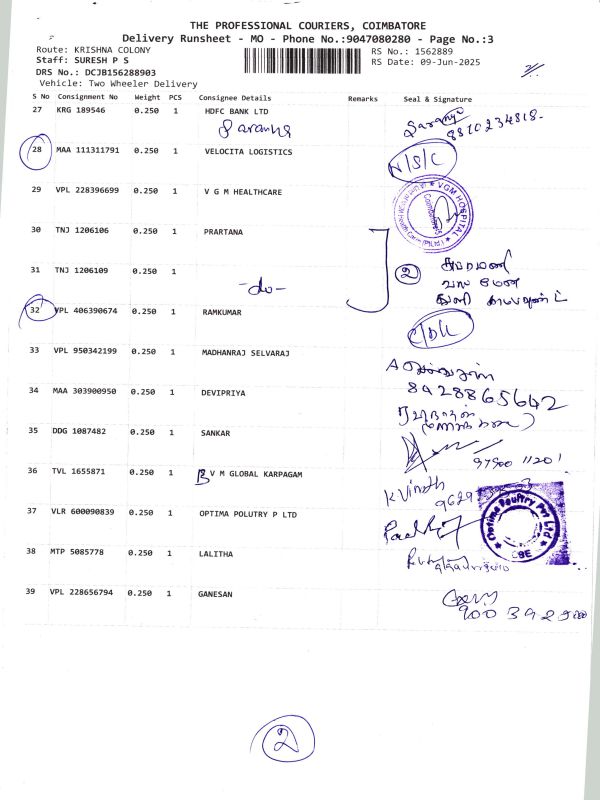 THE PROFESSIONAL COURIERS, COIMBATORE
Delivery Runsheet - MO - Phone No.:9047080280 - Page No.:3
Route: KRISHNA COLONY
RS No.: 1562889
Staff: SURESH P S
RS Date: 09-Jun-2025
DRS No.: DCJB156288903
Vehicle: Two Wheeler Delivery
S No Consignment No Weight PCS Consignee Details Remarks Seal & Signature
27 KRG 189546 0.250 1 HDFC BANK LTD
8810234818.
28 MAA 111311791 0.250 1 VELOCITA LOGISTICS
N/S/C
29 VPL 228396699 0.250 1 V G M HEALTHCARE
VGM HOSPITAL
Coimbatore
30 TNJ 1206106 0.250 1 PRARTANA
31 TNJ 1206109 0.250 1
-do-
2
32 VPL 406390674 0.250 1 RAMKUMAR
33 VPL 950342199 0.250 1 MADHANRAJ SELVARAJ
34 MAA 303900950 0.250 1 DEVIPRIYA
8428865642
35 DDG 1087482 0.250 1 SANKAR
97900 11201
36 TVL 1655871 1 B V M GLOBAL KARPAGAM
0.250
K Vinoth
9629
37 VLR 600090839 0.250 1 OPTIMA POLUTRY P LTD
Optima Poultry Pvt Ltd
CBE
38 MTP 5085778 0.250 1 LALITHA
39 VPL 228656794 0.250 1 GANESAN
2